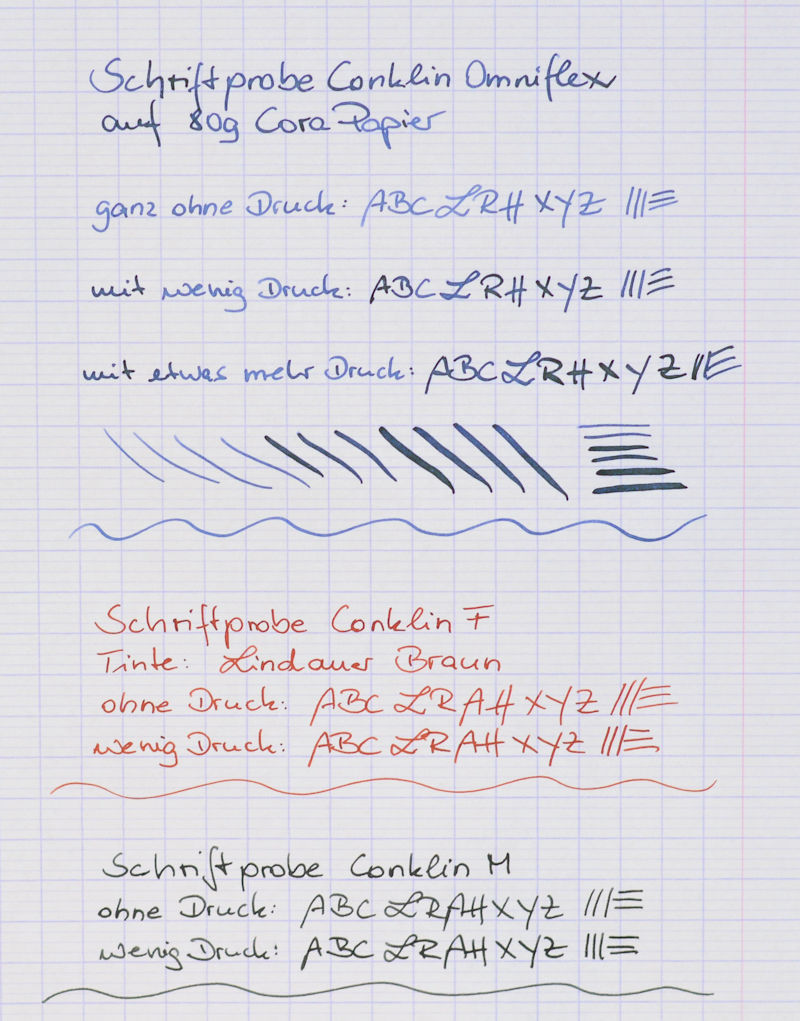 Schriftprobe Conklin Omniflex
auf 80g Cora Papier
ganz ohne Druck: ABC LRH XYZ
mit wenig Druck: ABC LRH XYZ
mit etwas mehr Druck: ABC LRH XYZ
Schriftprobe Conklin F
Tinte: Lindauer Braun
ohne Druck: ABC LRAH XYZ
wenig Druck: ABC LRAH XYZ
Schriftprobe Conklin M
ohne Druck: ABC LRAH XYZ
wenig Druck: ABC LRAH XYZ